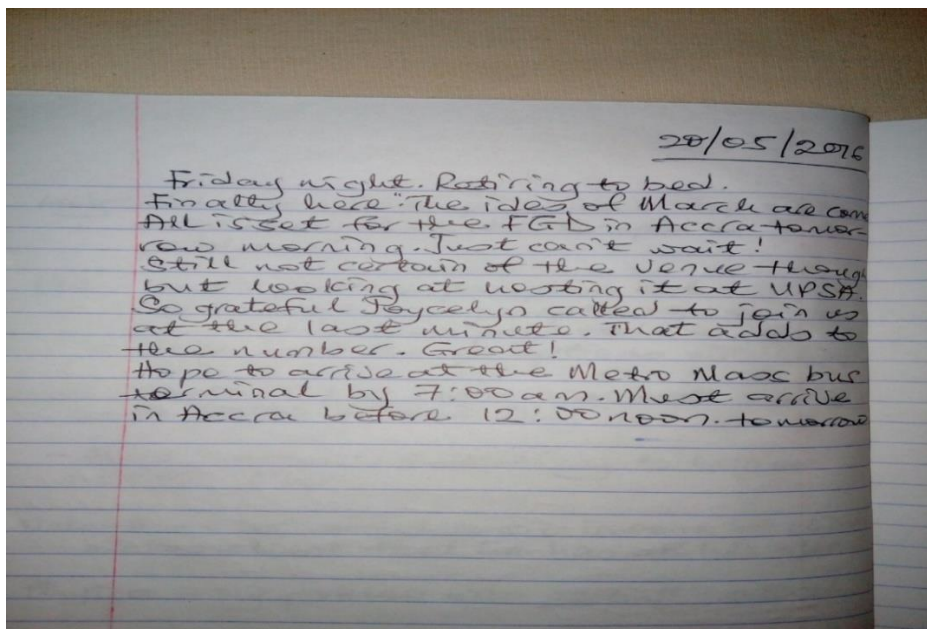 20/05/2016
Friday night. Retiring to bed.
Finally here "The ides of March are come
All is set for the FGD in Accra tomor-
row morning. Just can't wait!
Still not certain of the venue though
but looking at hosting it at UPSA.
So grateful Joycelyn called to join us
at the last minute. That adds to
the number. Great!
Hope to arrive at the Metro Mass bus
terminal by 7:00 am. Must arrive
in Accra before 12:00 noon. tomorrow